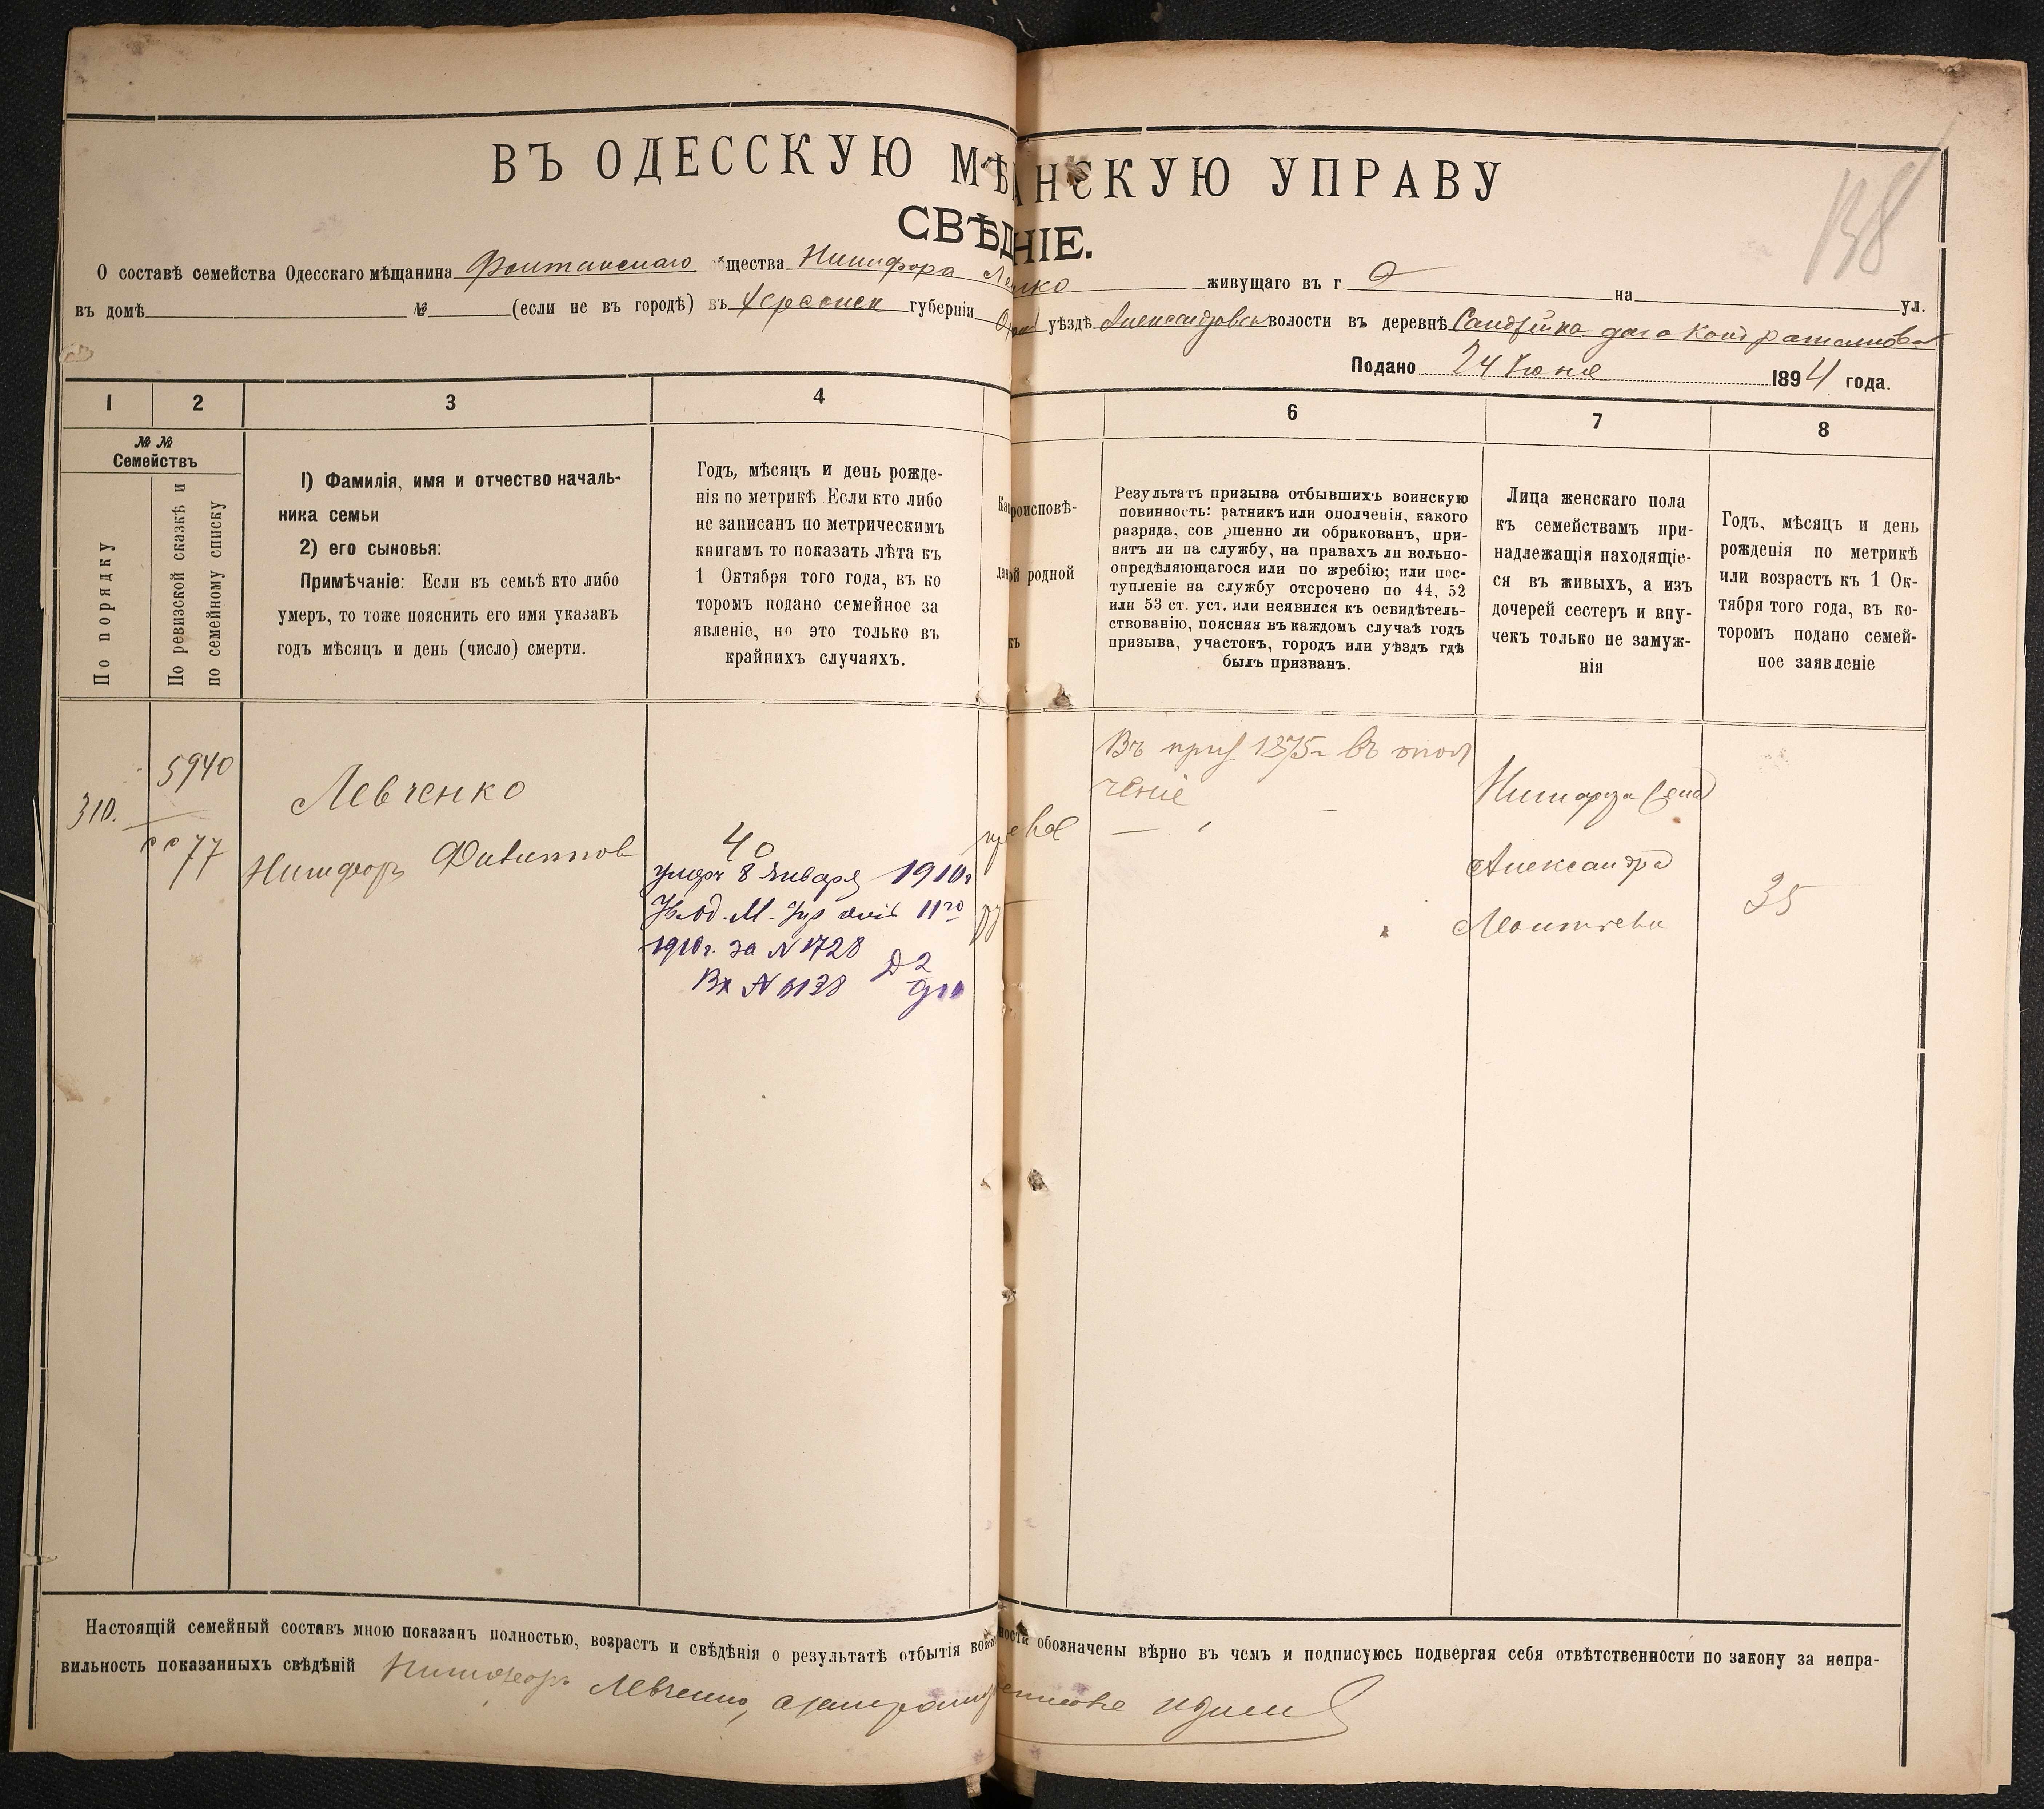 ВЪ ОДЕССКУЮ МѢ АНСКУЮ УПРАВУ
138
СВѢД НІЕ.
О составѣ семейства Одесскаго мѣщанина Фонтанскаго общества Никифора живущаго въ г О на ул.
въ домѣ № (если не въ городѣ) въ Херсонск губерніи уѣздѣ Александровск волости въ деревнѣ
Подано 24 Іюня 1894 года.
1 2 3 4 6 7 8
№ №
Семействъ
По порядку
По ревизской сказкѣ и
по семейному списку
1) Фамилія, имя и отчество началь-
ника семьи
2) его сыновья:
Примѣчаніе: Если въ семьѣ кто либо
умеръ, то тоже пояснить его имя указавъ
годъ мѣсяцъ и день (число) смерти.
Годъ, мѣсяцъ и день рожде-
нія по метрикѣ Если кто либо
не записанъ по метрическимъ
книгамъ то показать лѣта къ
1 Октября того года, въ ко
торомъ подано семейное за
явленіе, но это только въ
крайнихъ случаяхъ.
роисповѣ-
й родной
Результатъ призыва отбывшихъ воинскую
повинность: ратникъ или ополченія, какого
разряда, сов ршенно ли обракованъ, при-
нятъ ли на службу, на правахъ ли вольно-
опредѣляющагося или по жребію; или пос-
тупленіе на службу отсрочено по 44, 52
или 53 ст. уст. или неявился къ освидѣтель-
ствованію, поясняя въ каждомъ случаѣ годъ
призыва, участокъ, городъ или уѣздъ гдѣ
былъ призванъ.
Лица женскаго пола
къ семействамъ при-
надлежащія находящіе-
ся въ живыхъ, а изъ
дочерей сестеръ и вну-
чекъ только не замуж-
нія
Годъ, мѣсяцъ и день
рожденія по метрикѣ
или возрастъ къ 1 Ок-
тября того года, въ ко-
торомъ подано семей-
ное заявленіе
310.
5940
77
Левченко
Никифоръ
40
умеръ 8 Января 1910г
1910г. за № 1728
Вх №
Въ приз 1875г въ опол
ченіе
Никифора
Александра
35
Настоящій семейный составъ мною показанъ полностью, возрастъ и свѣдѣнія о результатѣ отбытія во ности обозначены вѣрно въ чемъ и подписуюсь подвергая себя отвѣтственности по закону за непра-
вильность показанныхъ свѣдѣній Никифоръ Левченко,